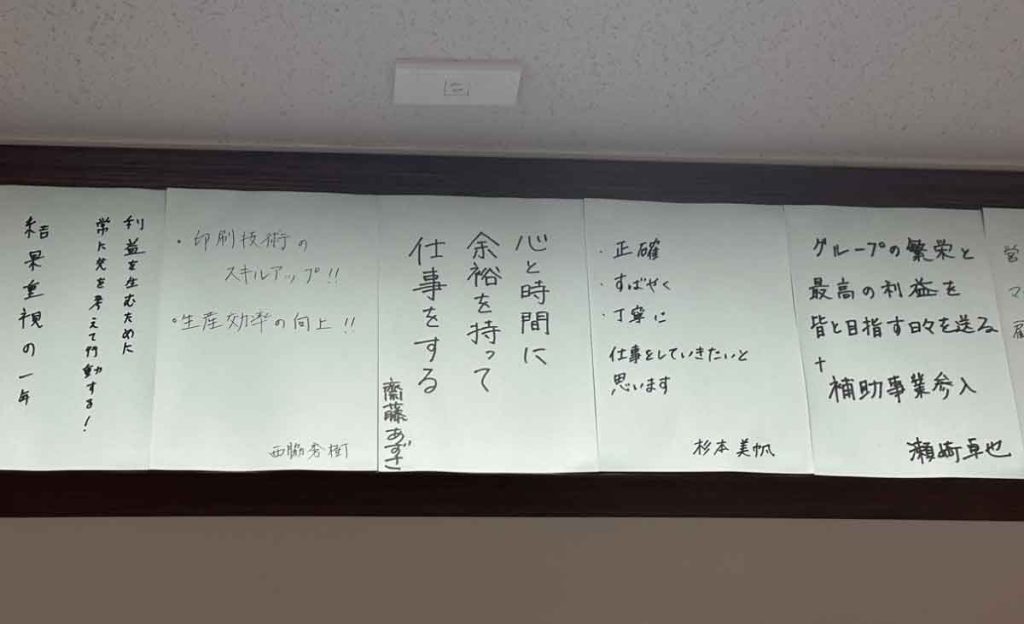 利益を生むために
常に先を考えて行動する!
結果重視の一年
・印刷技術の
スキルアップ!!
・生産効率の向上!!
西脇秀樹
心と時間に
余裕を持って
仕事をする
齋藤あずさ
・正確
・すばやく
・丁寧に
仕事をしていきたいと
思います
杉本美帆
グループの繁栄と
最高の利益を
皆と目指す日々を送る
+
補助事業参入
瀬崎卓也